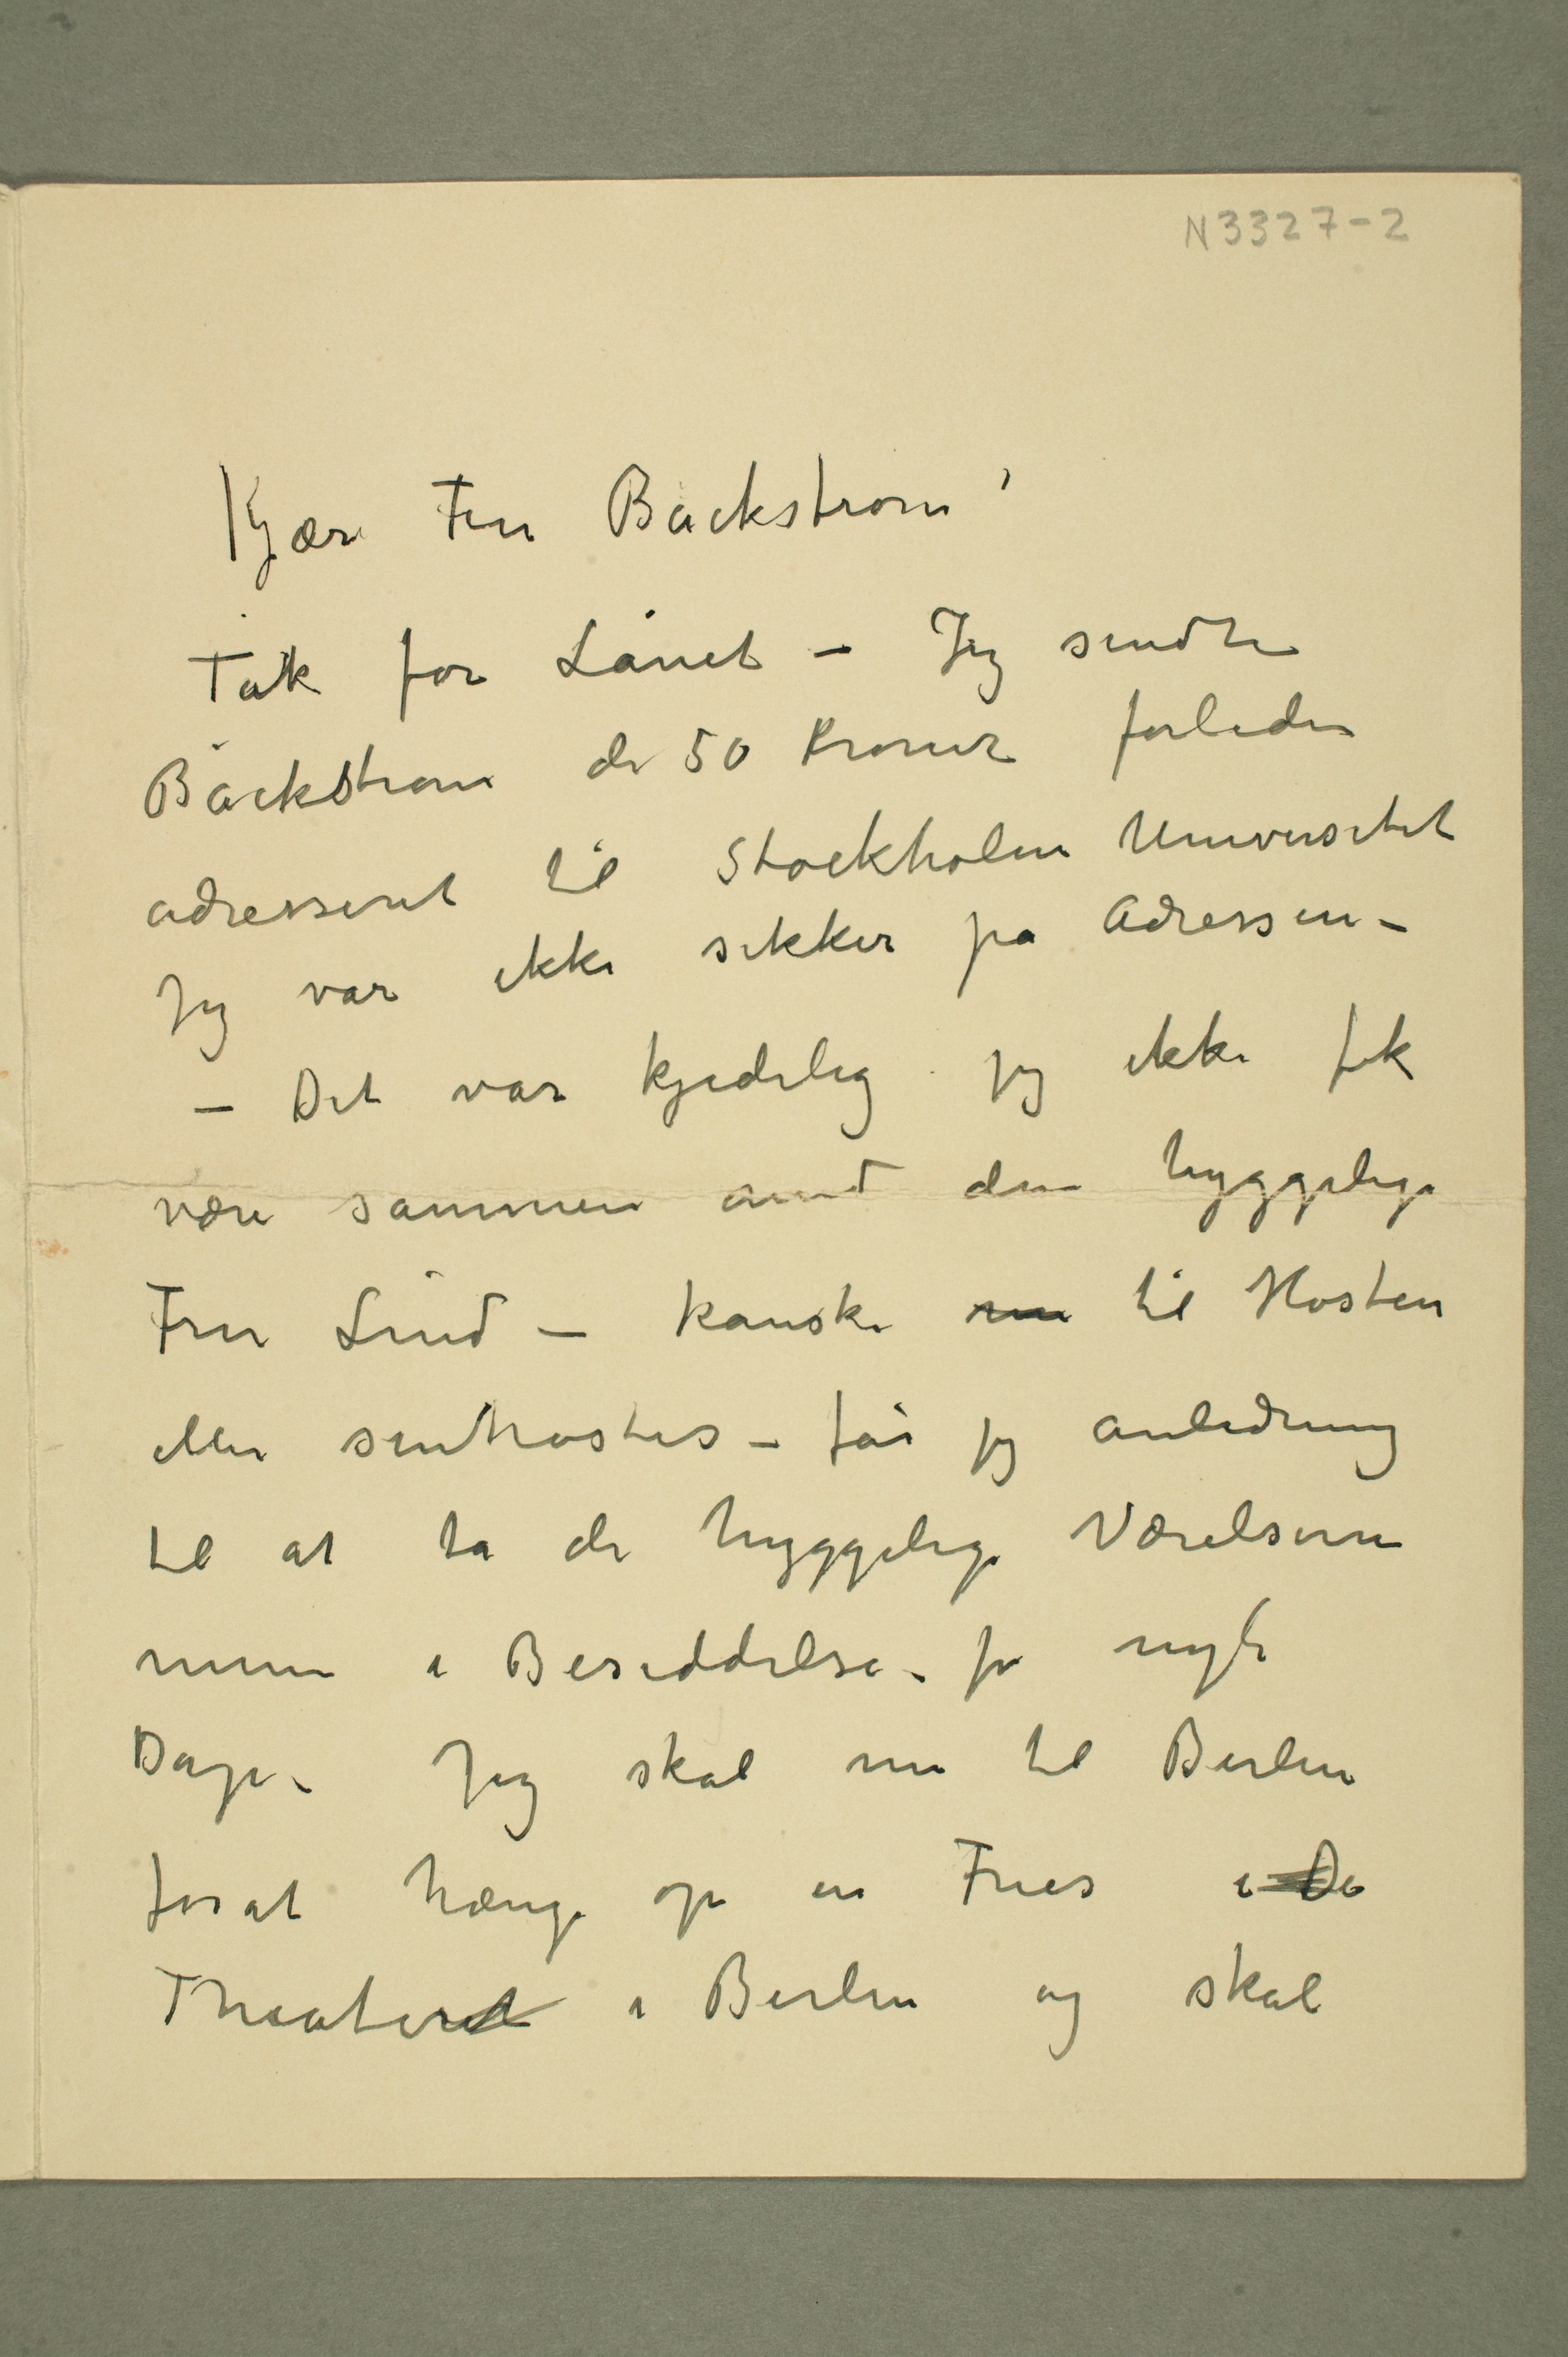 N3327-2
Kjære Fru Bäckstrøm!
Tak for Lånet – Jeg sendte
Bäckstrøm de 50 Kroner forleden
adresseret til Stockholm Universitet
Jeg var ikke sikker på Adressen –
– Det var kjedelig jeg ikke fik
være sammen med den hyggelige
Fru Lind – kanske nu til Høsten
eller senhøstes – får jeg anledning
til at ta de hyggelige Værelserne
mine i Besiddelse – for nogle
Dage – Jeg skal nu til Berlin
forat hænge op en Fries i De
Theateret i Berlin og skal